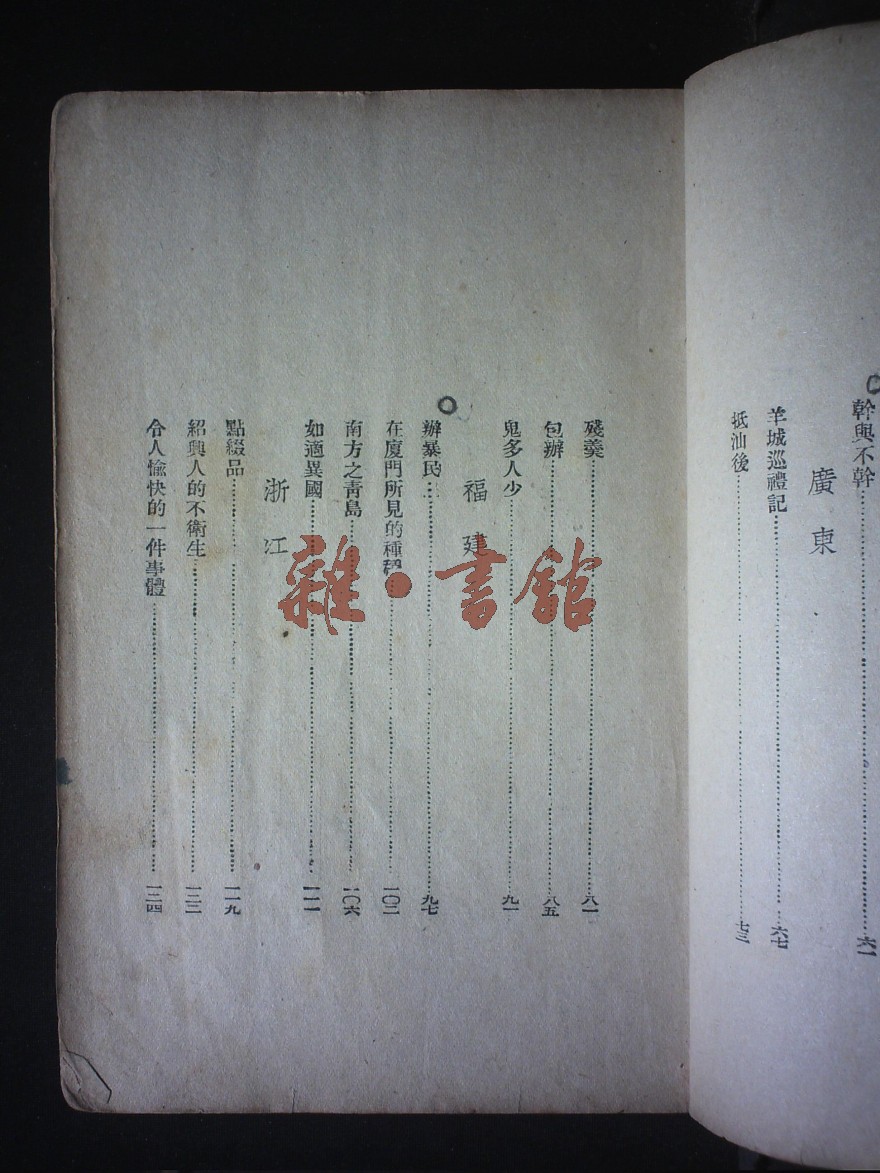 幹與不幹……六一
廣東
羊城巡禮記……六七
抵汕後……七三
殘羹……八一
包辦……八五
鬼多人少……九一
福建
辦暴民……九七
在廈門所見的種種……一〇二
南方之青島……一〇六
如適異國……一一一
浙江
點綴品……一一九
紹興人的不衛生……一二二
令人愉快的一件事體……一二四
雜·書館